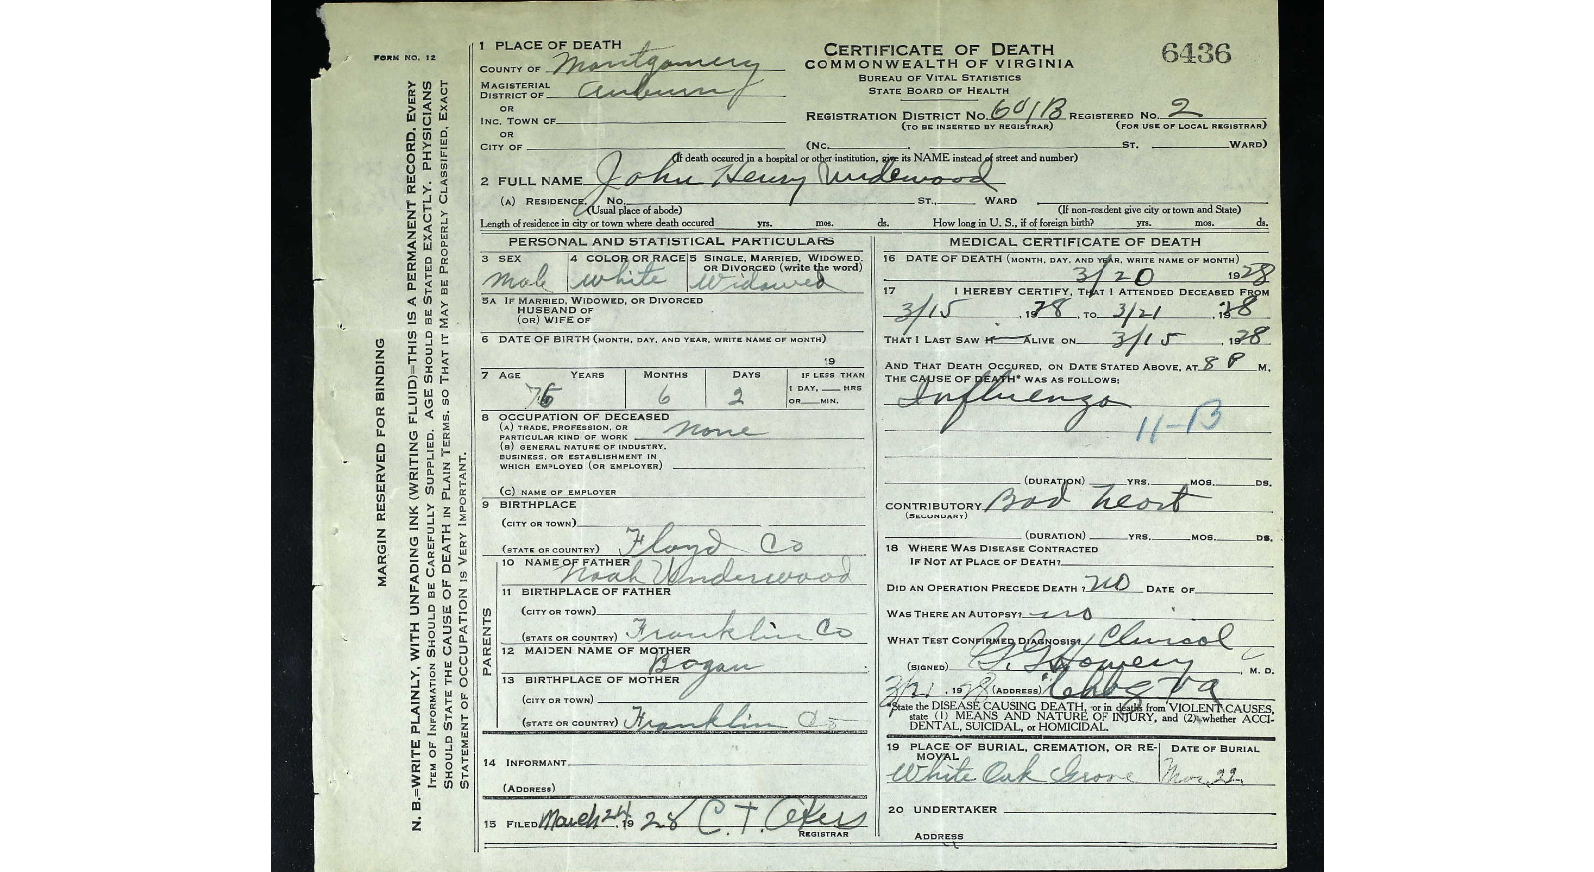 FORM NO. 12
MARGIN RESERVED FOR BINDING
N. B.=WRITE PLAINLY, WITH UNFADING INK (WRITING FLUID)=THIS IS A PERMANENT RECORD. EVERY
ITEM OF INFORMATION SHOULD BE CAREFULLY SUPPLIED. AGE SHOULD BE STATED EXACTLY. PHYSICIANS
SHOULD STATE THE CAUSE OF DEATH IN PLAIN TERMS, SO THAT IT MAY BE PROPERLY CLASSIFIED. EXACT
STATEMENT OF OCCUPATION IS VERY IMPORTANT.
CERTIFICATE OF DEATH
COMMONWEALTH OF VIRGINIA
BUREAU OF VITAL STATISTICS
STATE BOARD OF HEALTH
6436
1 PLACE OF DEATH
COUNTY OF Montgomery
MAGISTERIAL
DISTRICT OF Auburn
OR
INC. TOWN OF
OR
CITY OF
REGISTRATION DISTRICT NO. 601B REGISTERED NO. 2
(TO BE INSERTED BY REGISTRAR) (FOR USE OF LOCAL REGISTRAR)
(NO. ST. WARD)
(If death occured in a hospital or other institution, give its NAME instead of street and number)
2 FULL NAME John Henry Underwood
(A) RESIDENCE. NO. ST., WARD
(Usual place of abode) (If non-resident give city or town and State)
Length of residence in city or town where death occured yrs. mos. ds. How long in U. S., if of foreign birth? yrs. mos. ds.
PERSONAL AND STATISTICAL PARTICULARS
3 SEX 4 COLOR OR RACE 5 SINGLE, MARRIED, WIDOWED,
OR DIVORCED (write the word)
Male white Widowed
5A IF MARRIED, WIDOWED, OR DIVORCED
HUSBAND OF
(OR) WIFE OF
6 DATE OF BIRTH (MONTH, DAY, AND YEAR, WRITE NAME OF MONTH)
19
7 AGE YEARS MONTHS DAYS IF LESS THAN
1 DAY, HRS
OR MIN.
6 2
8 OCCUPATION OF DECEASED
(A) TRADE, PROFESSION, OR
PARTICULAR KIND OF WORK none
(B) GENERAL NATURE OF INDUSTRY,
BUSINESS, OR ESTABLISHMENT IN
WHICH EMPLOYED (OR EMPLOYER)
(C) NAME OF EMPLOYER
9 BIRTHPLACE
(CITY OR TOWN)
(STATE OR COUNTRY) Floyd Co
PARENTS
10 NAME OF FATHER
Noah Underwood
11 BIRTHPLACE OF FATHER
(CITY OR TOWN)
(STATE OR COUNTRY) Franklin Co
12 MAIDEN NAME OF MOTHER
Bogan
13 BIRTHPLACE OF MOTHER
(CITY OR TOWN)
(STATE OR COUNTRY) Franklin Co
14 INFORMANT
(ADDRESS)
15 FILED March 24 1928 C. T. Akers
REGISTRAR
MEDICAL CERTIFICATE OF DEATH
16 DATE OF DEATH (MONTH, DAY, AND YEAR, WRITE NAME OF MONTH)
3/20 1928
17 I HEREBY CERTIFY, THAT I ATTENDED DECEASED FROM
3/15, 1928, TO 3/21, 1928
THAT I LAST SAW H ALIVE ON 3/15, 1928
AND THAT DEATH OCCURED, ON DATE STATED ABOVE, AT 8 P M,
THE CAUSE OF DEATH* WAS AS FOLLOWS:
Influenza
11-B
(DURATION) YRS. MOS. DS.
CONTRIBUTORY Bad heart
(SECUNDARY)
(DURATION) YRS. MOS. DS.
18 WHERE WAS DISEASE CONTRACTED
IF NOT AT PLACE OF DEATH?
DID AN OPERATION PRECEDE DEATH? no DATE OF
WAS THERE AN AUTOPSY? no
WHAT TEST CONFIRMED DIAGNOSIS? Clinical
(SIGNED) Howery, M. D.
3/21, 1928 (ADDRESS) Chbg Va
*State the DISEASE CAUSING DEATH, or in deaths from VIOLENT CAUSES,
state (1) MEANS AND NATURE OF INJURY, and (2) whether ACCI-
DENTAL, SUICIDAL, or HOMICIDAL.
19 PLACE OF BURIAL, CREMATION, OR RE- DATE OF BURIAL
MOVAL
White Oak Grove Mar. 22
20 UNDERTAKER
ADDRESS